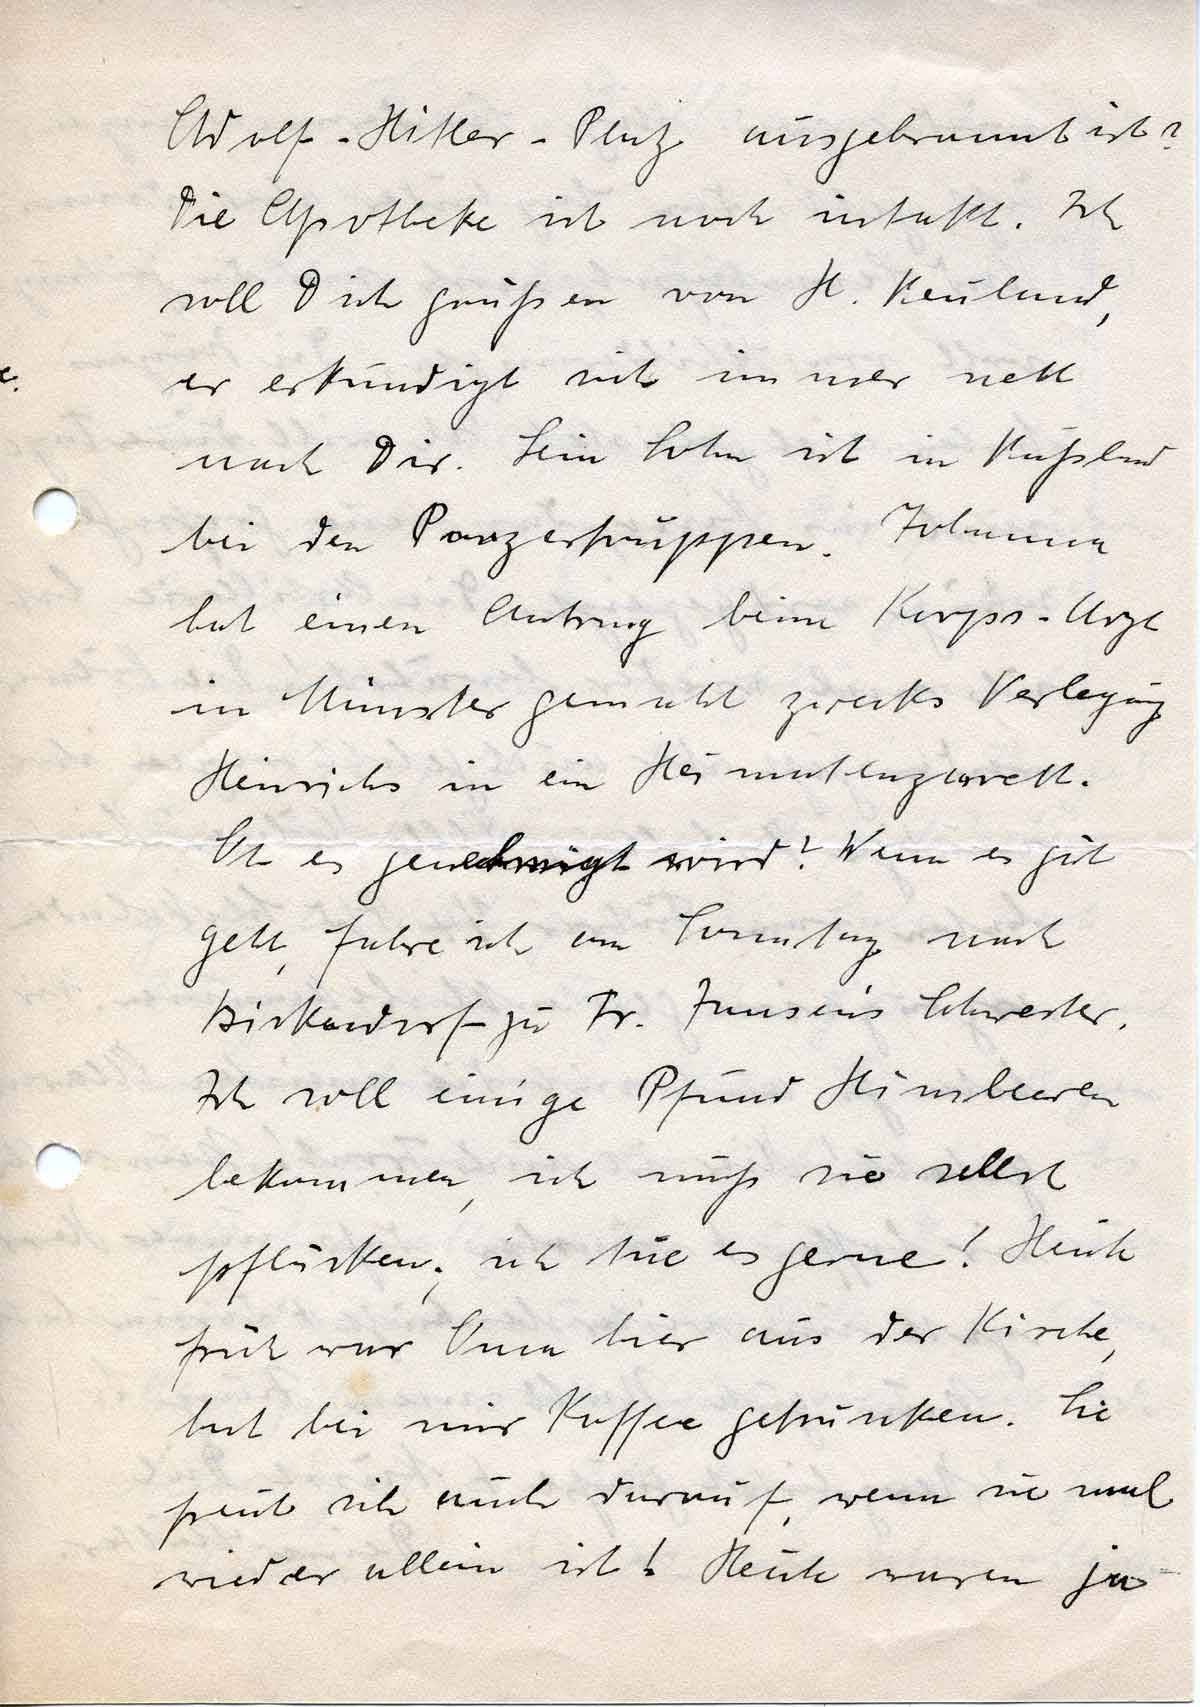 Adolf-Hitler-Platz ausgebrannt ist?
Die Apotheke ist noch intakt. Ich
soll Dich grüßen von H. Neuland,
er erkundigt sich immer nett
e.
nach Dir. Sein Sohn ist in Rußland
bei den Panzertruppen. Johanna
hat einen Antrag beim Korps-Arzt
in Münster gemacht zwecks Verlegung
Heinrichs in ein Heimatlazarett.
Ob es genehmigt wird? Wenn es gut
geht, fahre ich am Sonntag nach
Birkendorf zu Fr. Schwester.
Ich soll einige Pfund Himbeeren
bekommen, ich muß sie selbst
pflücken, ich tue es gerne! Heute
früh war Oma hier aus der Kirche,
hat bei mir Kaffee getrunken. Sie
freut sich auch darauf, wenn sie mal
wieder allein ist! Heute waren ja